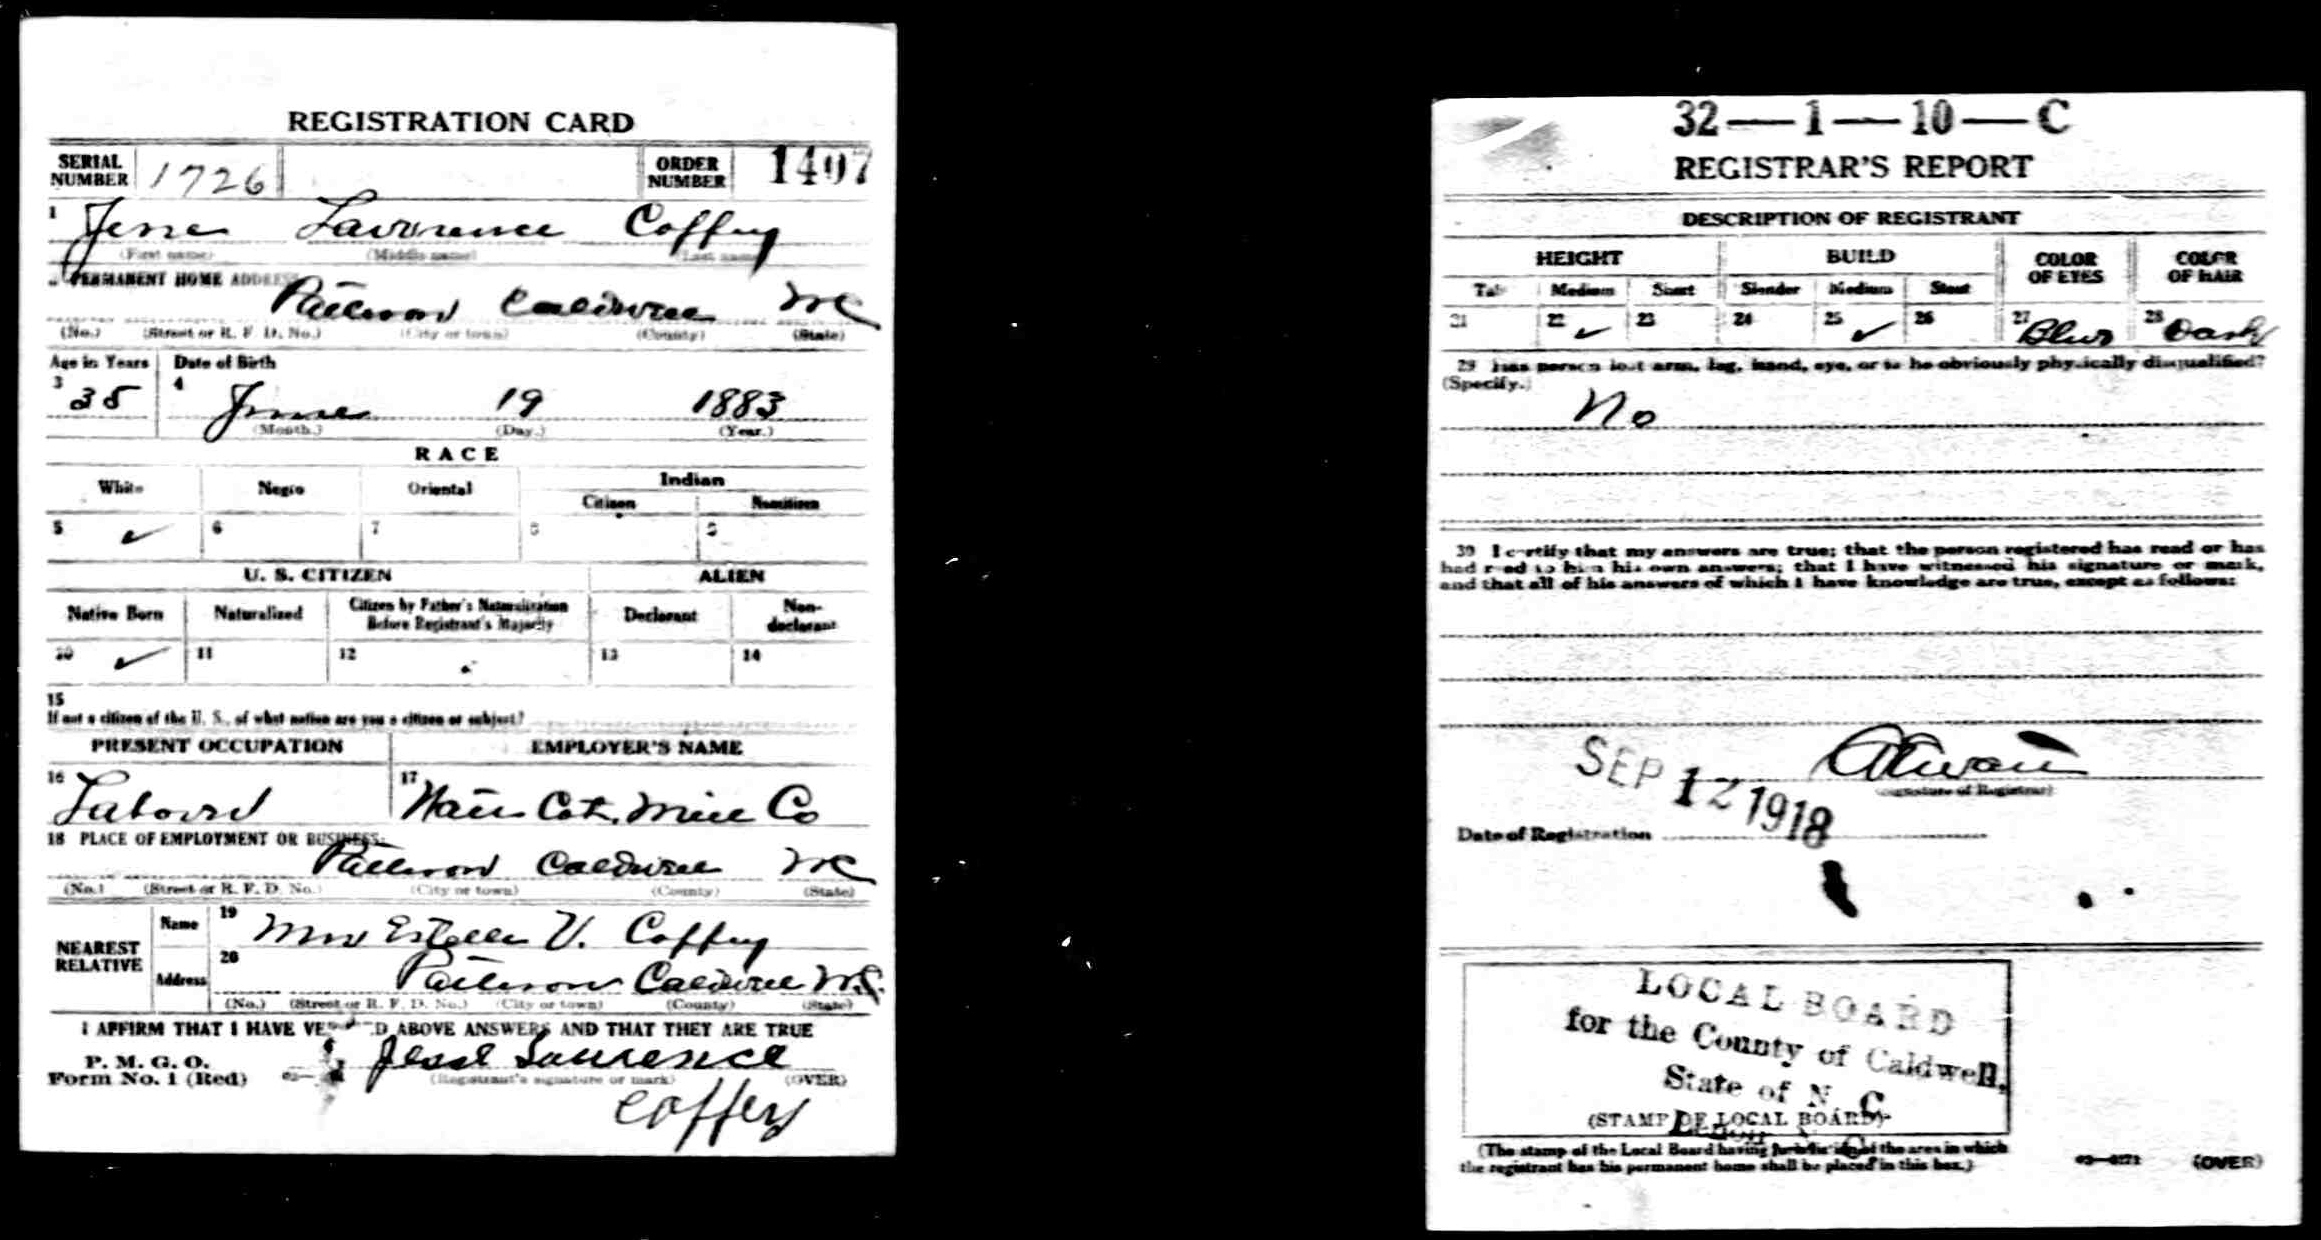 REGISTRATION CARD
SERIAL NUMBER 1726 ORDER NUMBER 1407
1 Jesse Lawrence Coffey
(First name) (Middle name) (Last name)
2 PERMANENT HOME ADDRESS
Patterson Caldwell NC
(No.) (Street or R. F. D. No.) (City or town) (County) (State)
Age in Years Date of Birth
3 35 4 June 19 1883
(Month.) (Day.) (Year.)
RACE
White Negro Oriental Indian
Citizen Noncitizen
5 ✓ 6 7 8 9
U. S. CITIZEN ALIEN
Native Born Naturalized Citizen by Father's Naturalization Before Registrant's Majority Declarant Non-declarant
10 ✓ 11 12 13 14
15
If not a citizen of the U. S., of what nation are you a citizen or subject?
PRESENT OCCUPATION EMPLOYER'S NAME
16 17
Cot. Mill Co
18 PLACE OF EMPLOYMENT OR BUSINESS:
Patterson Caldwell NC
(No.) (Street or R. F. D. No.) (City or town) (County) (State)
NEAREST RELATIVE
Name 19 Mrs Estelle V. Coffey
Address 20 Patterson Caldwell N.C.
(No.) (Street or R. F. D. No.) (City or town) (County) (State)
I AFFIRM THAT I HAVE VE D ABOVE ANSWERS AND THAT THEY ARE TRUE
P. M. G. O.
Form No. 1 (Red) Jesse Lawrence
(Registrant's signature or mark) (OVER)
Coffey
32—1—10—C
REGISTRAR'S REPORT
DESCRIPTION OF REGISTRANT
HEIGHT BUILD COLOR OF EYES COLOR OF HAIR
Tall Medium Short Slender Medium Stout
21 22 ✓ 23 24 25 ✓ 26 27 Blue 28 Dark
29 Has person lost arm, leg, hand, eye, or is he obviously physically disqualified?
(Specify.)
No
30 I certify that my answers are true; that the person registered has read or has
had read to him his own answers; that I have witnessed his signature or mark,
and that all of his answers of which I have knowledge are true, except as follows:
(Signature of Registrar)
SEP 12 1918
Date of Registration
LOCAL BOARD
for the County of Caldwell,
State of N. C.
(STAMP OF LOCAL BOARD)
(The stamp of the Local Board having jurisdiction of the area in which
the registrant has his permanent home shall be placed in this box.)
(OVER)